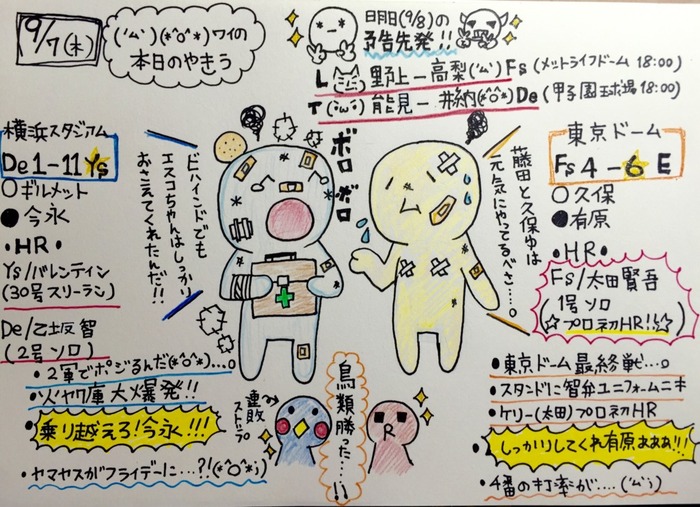 9/7(木)
('ㅿ')(*^o^*)ワイの
本日のやきう
明日(9/8)の
予告先発!!
L 野上ー高梨('ㅿ')Fs(メットライフドーム 18:00)
T 能見ー井納(*^o^*)De(甲子園球場18:00)
横浜スタジアム
De 1-11 Ys
○ギルメット
●今永
・HR・
Ys/バレンティン
(30号スリーラン)
De/乙坂智
(2号ソロ)
・2軍でポジるんだ(*^o^*)...。
・火ヤク庫 大爆発!!
・乗り越えろ!今永!!!
・ヤマヤスがフライデーに…?!(*^o^*;)
ビハインドでも
エスコちゃんはしっかり
おさえてくれたんだ!!
ボロボロ
藤田と久保ゆは
元気にやってるべさ…。
東京ドーム
Fs 4-6 E
○久保
●有原
・HR・
Fs/太田賢吾
1号ソロ
(☆プロ初HR!!☆)
・東京ドーム最終戦...。
・スタンドに智弁ユニフォームニキ
・ケリー(太田)プロ初HR
・しっかりしてくれ有原ぉぉぉ!!
・4番の打率が….('ㅿ';)
連敗
ストップ
鳥類勝った…!!
R